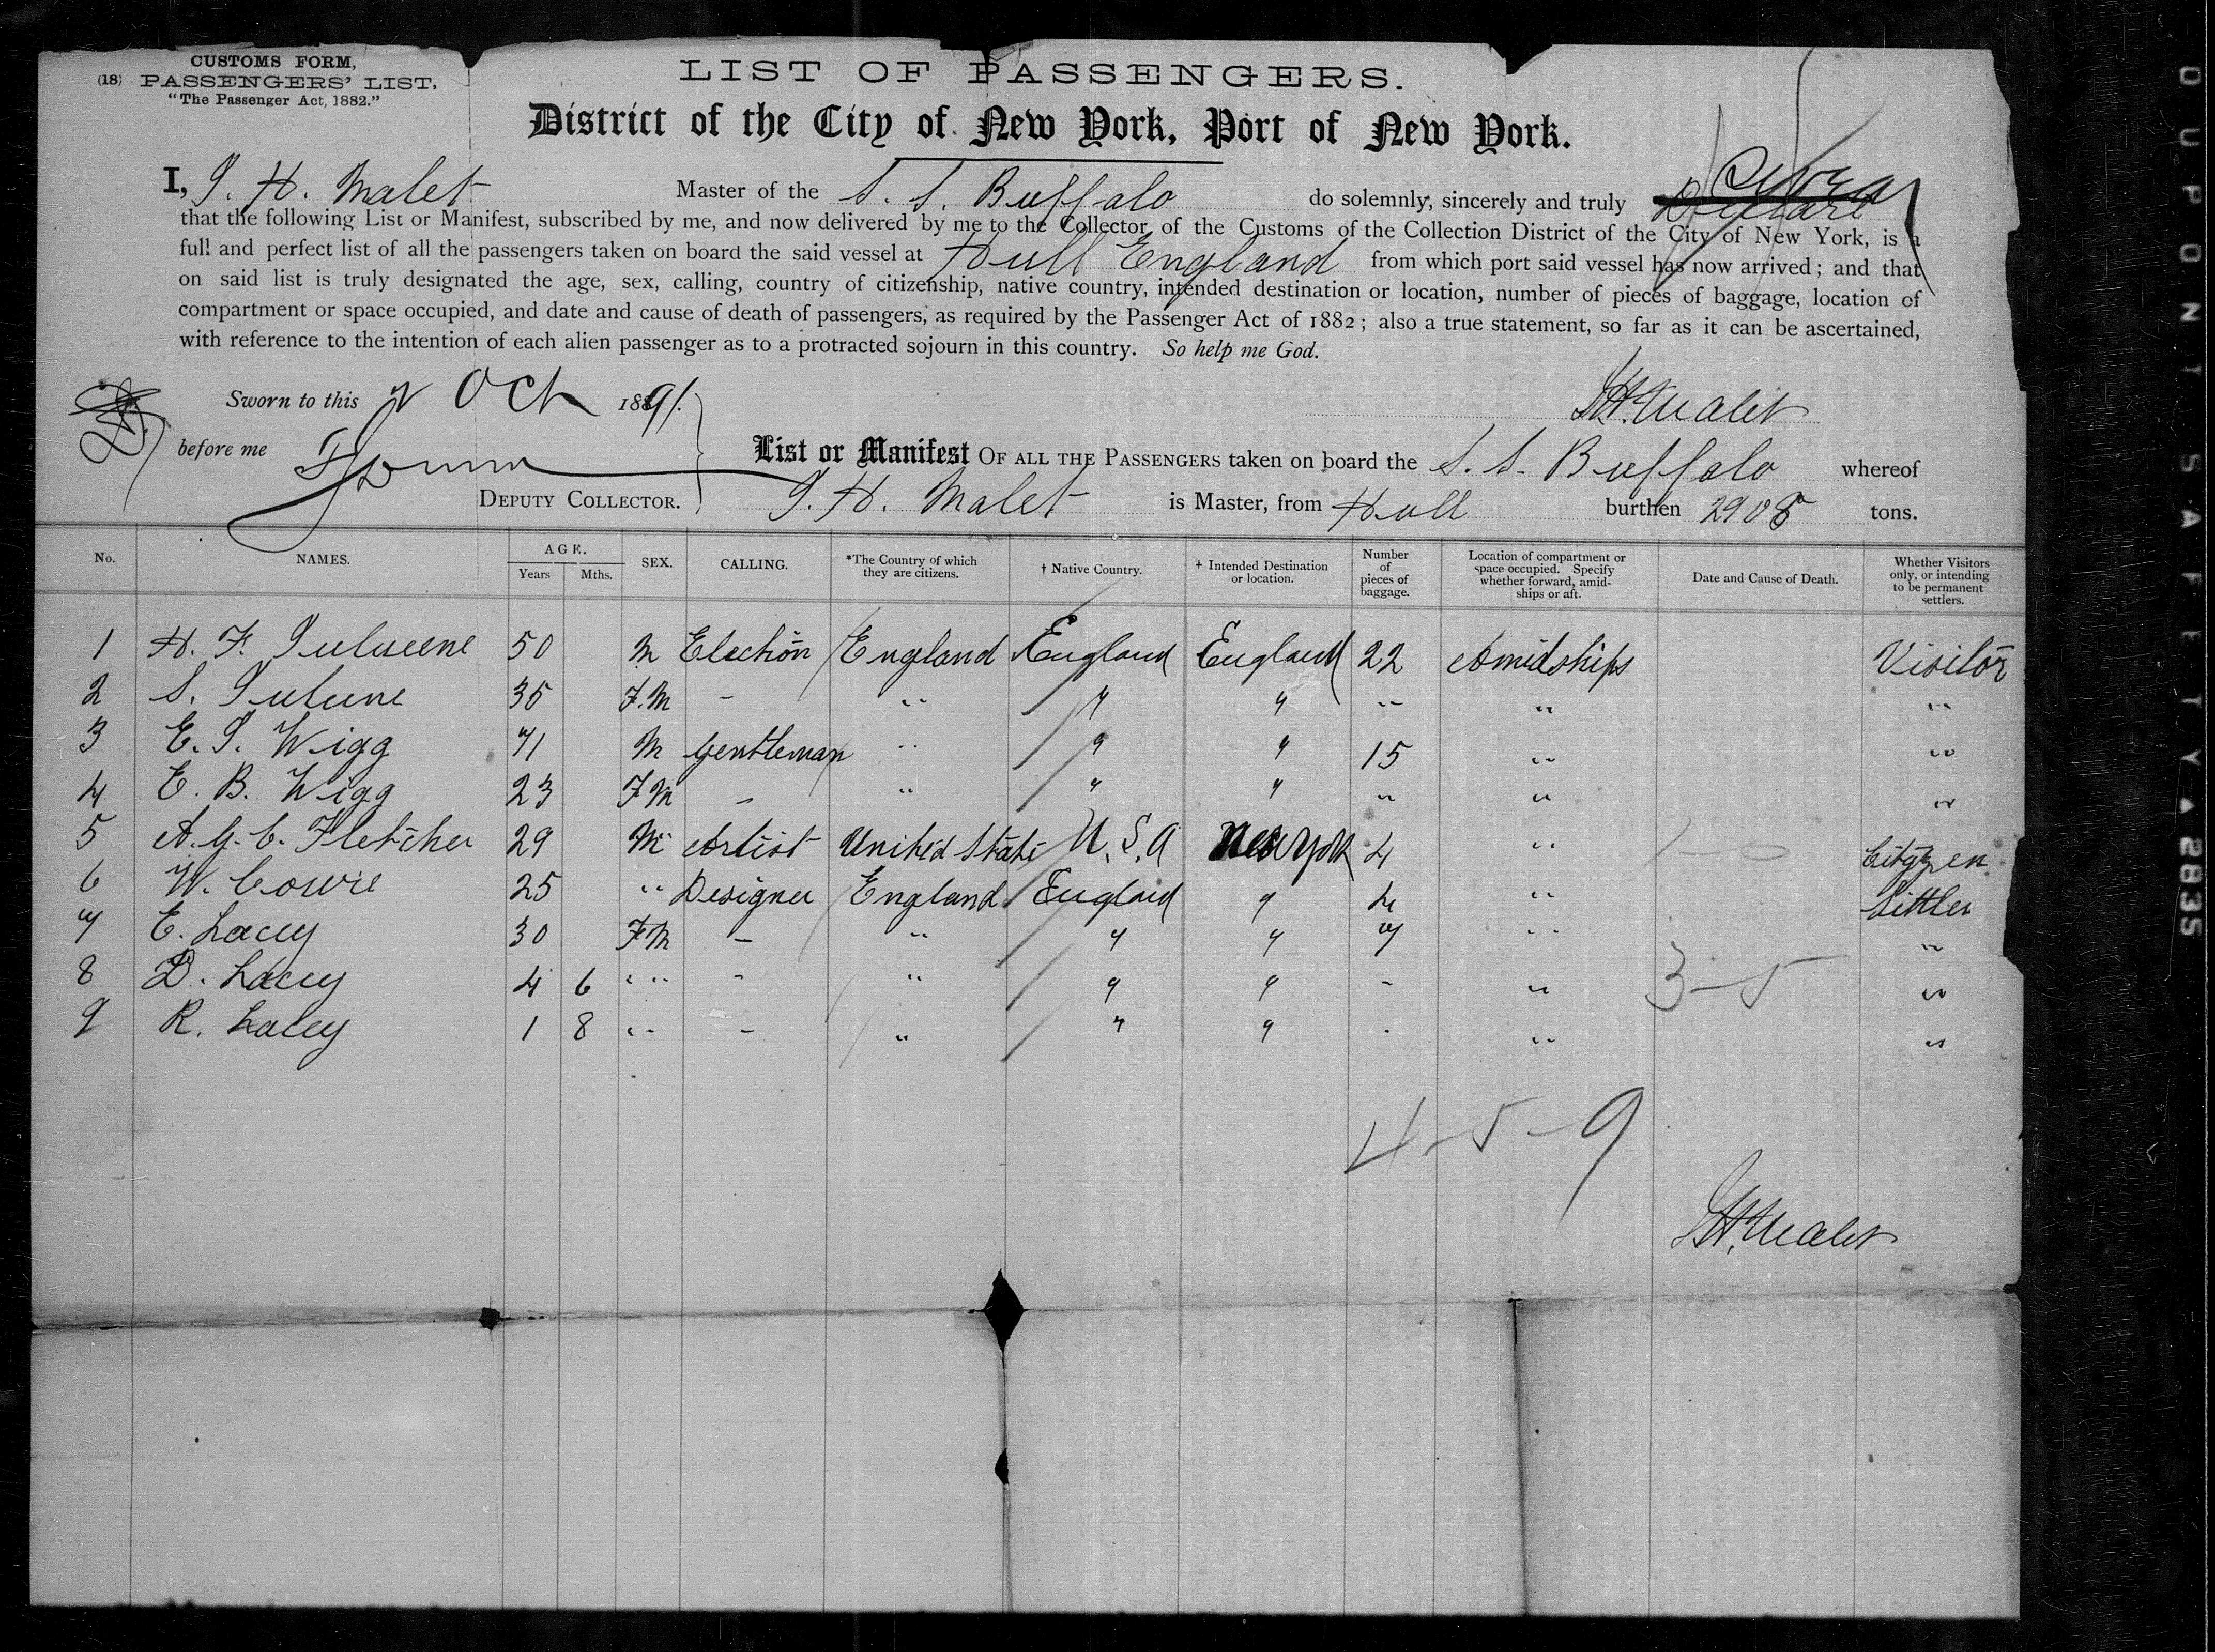 CUSTOMS FORM,
(18) PASSENGERS' LIST,
"The Passenger Act, 1882."
LIST OF PASSENGERS.
District of the City of New York, Port of New York.
I, J. H. Malet Master of the S. S. Buffalo do solemnly, sincerely and truly
that the following List or Manifest, subscribed by me, and now delivered by me to the Collector of the Customs of the Collection District of the City of New York, is a
full and perfect list of all the passengers taken on board the said vessel at Hull England from which port said vessel has now arrived; and that
on said list is truly designated the age, sex, calling, country of citizenship, native country, intended destination or location, number of pieces of baggage, location of
compartment or space occupied, and date and cause of death of passengers, as required by the Passenger Act of 1882; also a true statement, so far as it can be ascertained,
with reference to the intention of each alien passenger as to a protracted sojourn in this country. So help me God.
Sworn to this 2 Oct 1891.
J. H. Malet
before me
List or Manifest OF ALL THE PASSENGERS taken on board the S. S. Buffalo whereof
DEPUTY COLLECTOR. J. H. Malet is Master, from Hull burthen 2908 tons.
No. NAMES. AGE. Years Mths. SEX. CALLING. *The Country of which they are citizens. † Native Country. + Intended Destination or location. Number of pieces of baggage. Location of compartment or space occupied. Specify whether forward, amidships or aft. Date and Cause of Death. Whether Visitors only, or intending to be permanent settlers.
1 H. F. 50 M England England England 22 Amidships Visitor
2 S. 35 F.M - " " " " " "
3 E. J. Wigg 71 M Gentleman " " " 15 " "
4 E. B. Wigg 23 FM - " " " " " "
5 A. G. C. Fletcher 29 M Artist United State U.S.A New York 4 " 1-0 Citizen
6 W. Cowie 25 " Designer England England " 4 " Settler
7 E. Lacey 30 FM - " " " 7 " "
8 D. Lacey 4 6 " " - " " " - " 3-5 "
9 R. Lacey 1 8 " " - " " " - " "
4-5-9
J. H. Malet
DUPONT SAFETY ▲ 2835